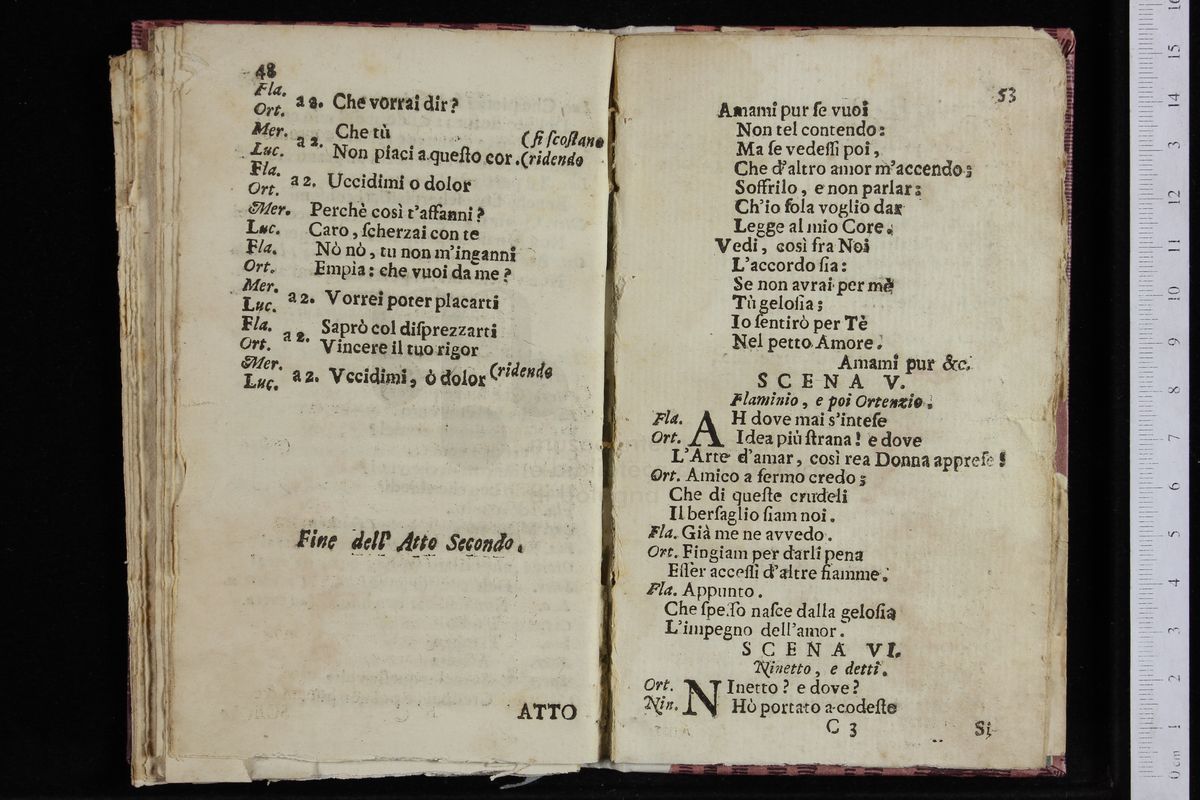 48
Fla.
Ort. a 2. Che vorrai dir?
Mer. a 2. Che tù (ſi ſcoſtano
Luc. Non piaci a queſto cor. (ridendo
Fla.
Ort. a 2. Uccidimi o dolor
Mer. Perchè così t'affanni?
Luc. Caro, ſcherzai con te
Fla. Nò nò, tu non m'inganni
Ort. Empia: che vuoi da me?
Mer.
Luc. a 2. Vorrei poter placarti
Fla. a 2. Saprò col diſprezzarti
Ort. Vincere il tuo rigor
Mer.
Luc. a 2. Vccidimi, ò dolor (ridendo
Fine dell' Atto Secondo.
ATTO
53
Amami pur ſe vuoi
Non tel contendo:
Ma ſe vedeſſi poi,
Che d'altro amor m'accendo;
Soffrilo, e non parlar:
Ch'io ſola voglio dar
Legge al mio Core.
Vedi, così fra Noi
L'accordo ſia:
Se non avrai per mè
Tù geloſia;
Io ſentirò per Tè
Nel petto Amore.
Amami pur &c.
SCENA V.
Flaminio, e poi Ortenzio.
Fla. AH dove mai s'inteſe
Ort. Idea più ſtrana! e dove
L'Arte d'amar, così rea Donna appreſe!
Ort. Amico a fermo credo;
Che di queſte crudeli
Il berſaglio ſiam noi.
Fla. Già me ne avvedo.
Ort. Fingiam per darli pena
Eſſer acceſſi d'altre fiamme.
Fla. Appunto.
Che ſpeſſo naſce dalla geloſia
L'impegno dell'amor.
SCENA VI.
Ninetto, e detti.
Ort. NInetto? e dove?
Nin. Hò portato a codeſte
C 3
Si
0 cm 1 2 3 4 5 6 7 8 9 10 11 12 13 14 15 16